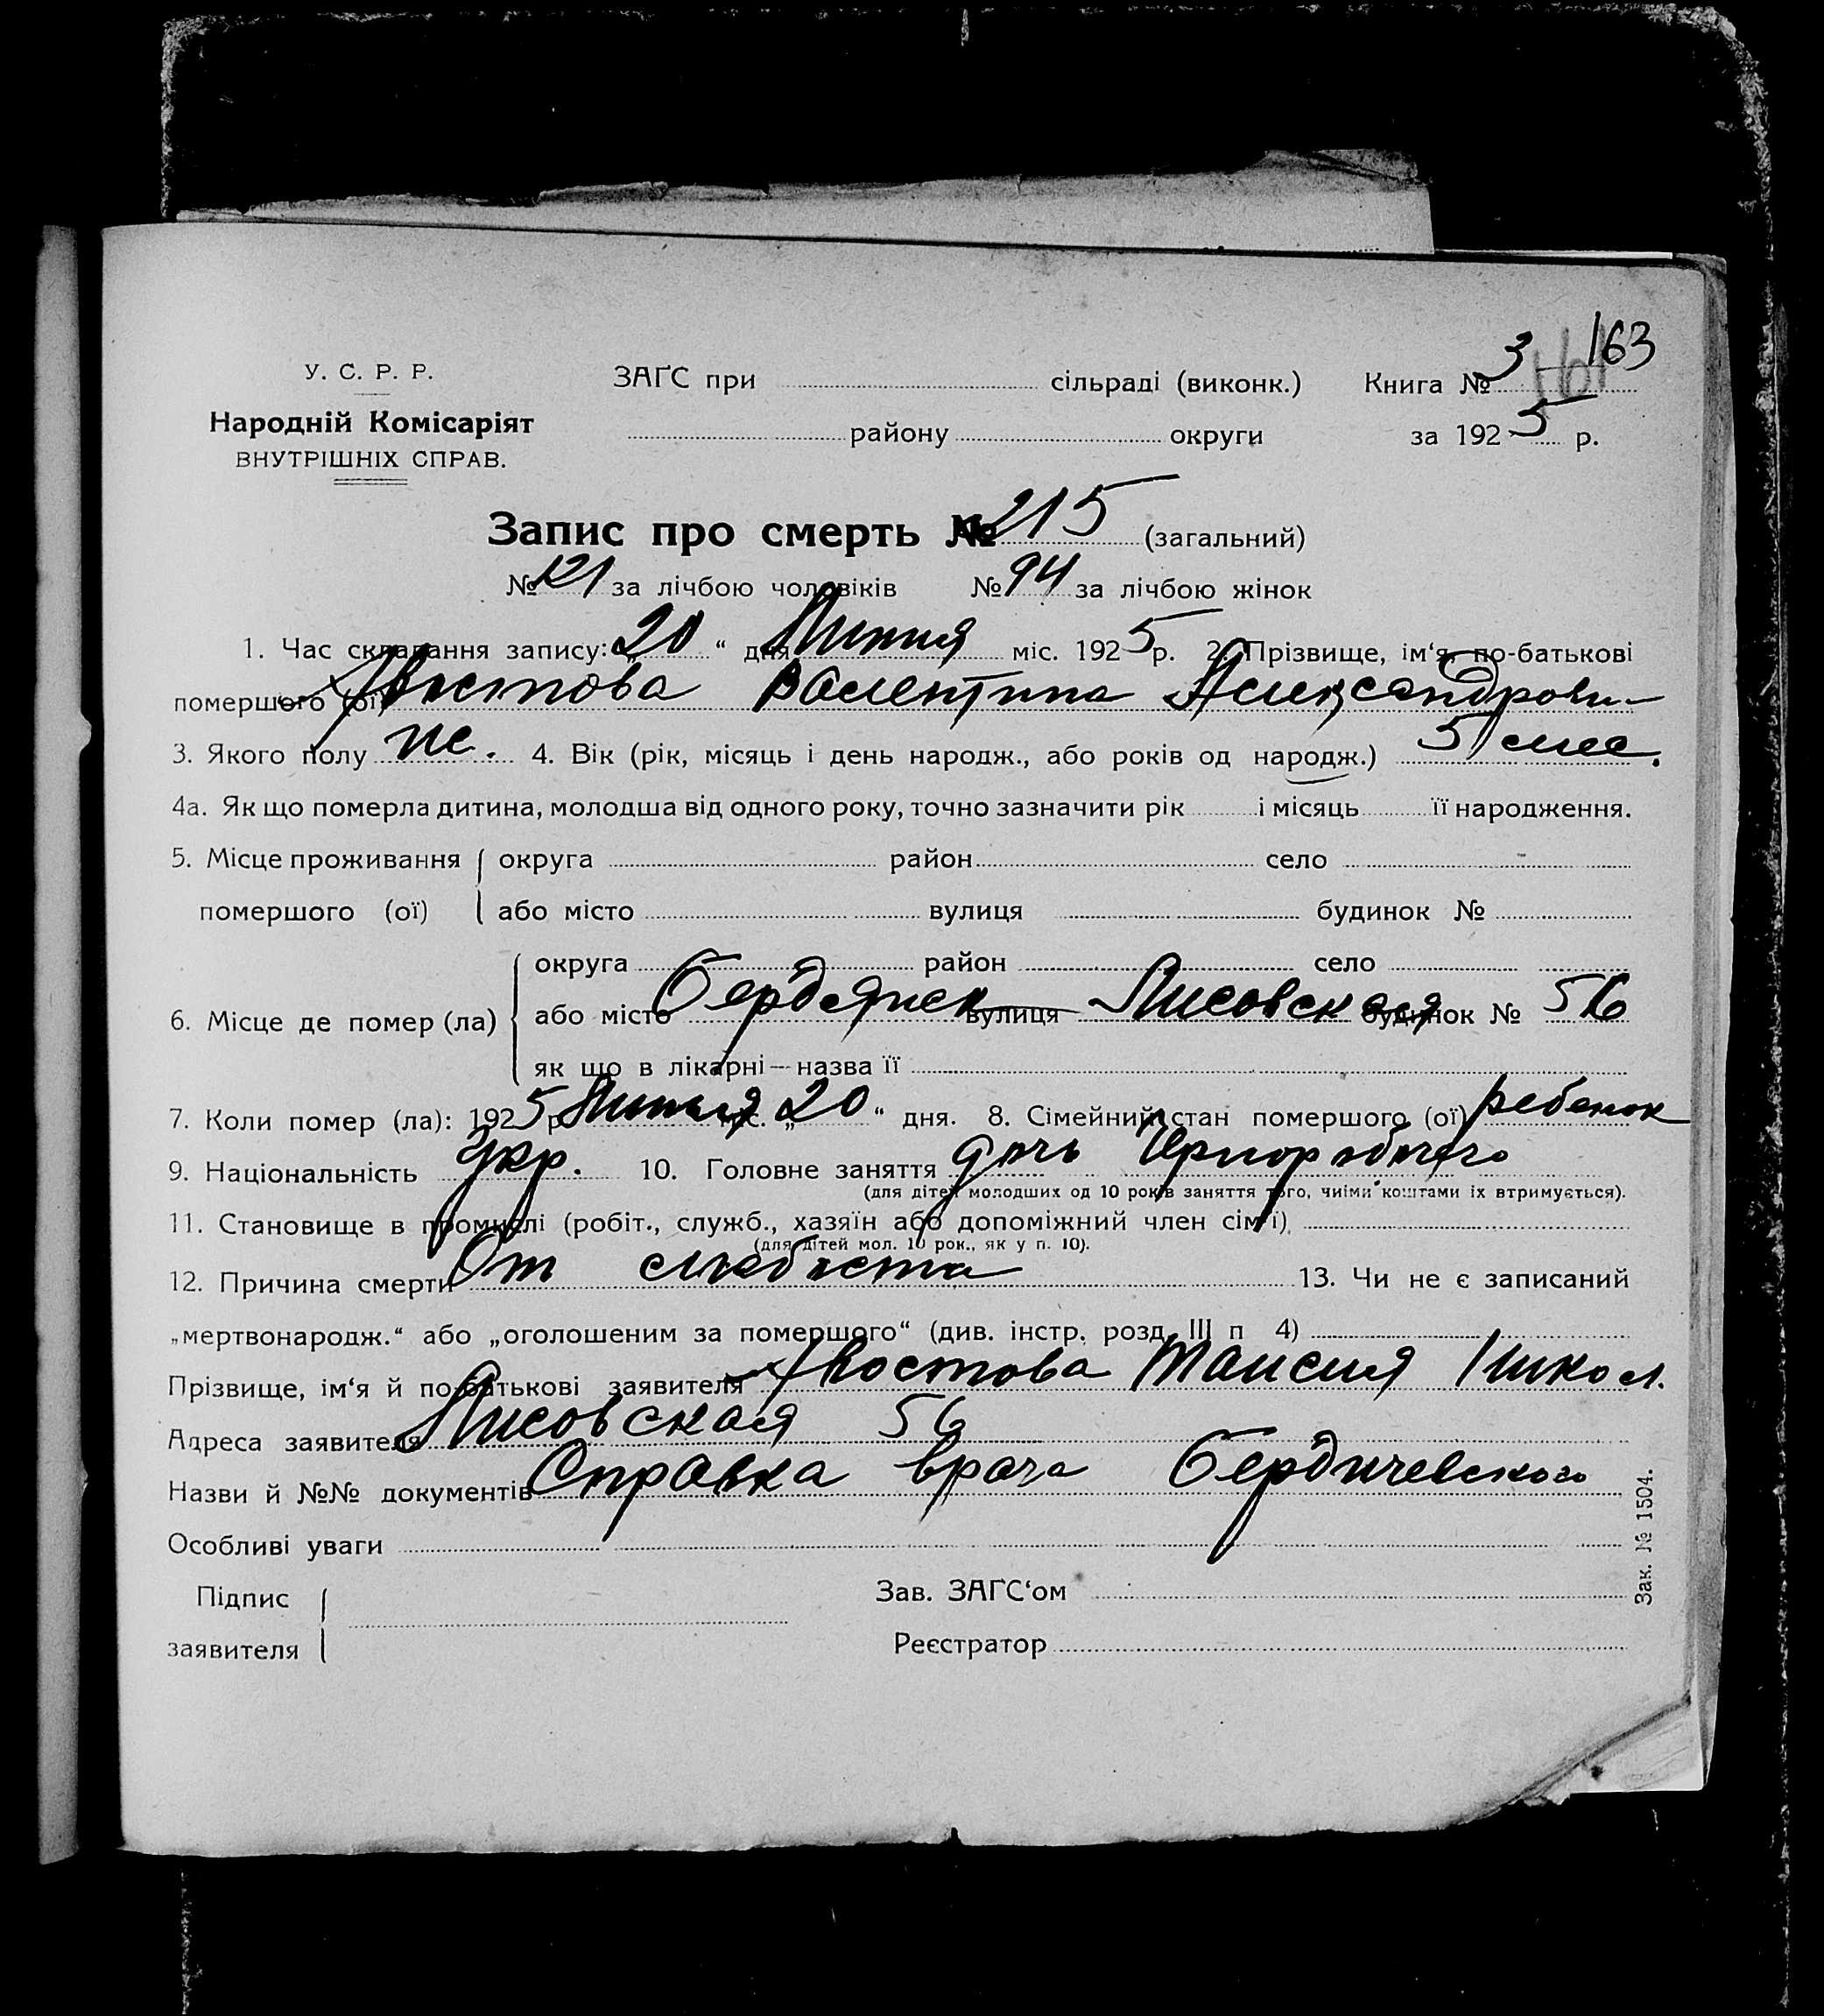 163
У. С. Р. Р. ЗАҐС при сільраді (виконк.) Книга № 3
Народній Комісаріят району округи за 1925 р.
ВНУТРІШНІХ СПРАВ.
Запис про смерть № 215 (загальний)
№ 121 за лічбою чоловіків № 94 за лічбою жінок
1. Час складання запису: „20“ дня Липня міс. 1925 р. 2. Прізвище, ім‘я, по-батькові
помершого (ої) Хвостова Валентина Александровн
3. Якого полу ж. 4. Вік (рік, місяць і день народж., або років од народж.) 5 мес.
4а. Як що померла дитина, молодша від одного року, точно зазначити рік і місяць її народження.
5. Місце проживання округа район село
помершого (ої) або місто вулиця будинок №
округа район село
6. Місце де помер (ла) або місто Бердянск вулиця Лисовская будинок № 56
як що в лікарні — назва її
7. Коли помер (ла): 1925 р. Липня міс. „20“ дня. 8. Сімейний стан помершого (ої) ребенок
9. Національність укр. 10. Головне заняття дочь Чернорабочего
(для дітей молодших од 10 років заняття того, чиїми коштами їх втримується).
11. Становище в промислі (робіт., служб., хазяїн або допоміжний член сім‘ї)
(для дітей мол. 10 рок., як у п. 10).
12. Причина смерти От слабости 13. Чи не є записаний
„мертвонародж.“ або „оголошеним за помершого“ (див. інстр. розд. III п 4)
Прізвище, ім‘я й по-батькові заявителя Хвостова Таисия Никол.
Адреса заявителя Лисовская 56
Назви й №№ документів Справка врача Бердичевского
Особливі уваги
Підпис Зав. ЗАҐС‘ом
заявителя Реєстратор
Зак. № 1504.